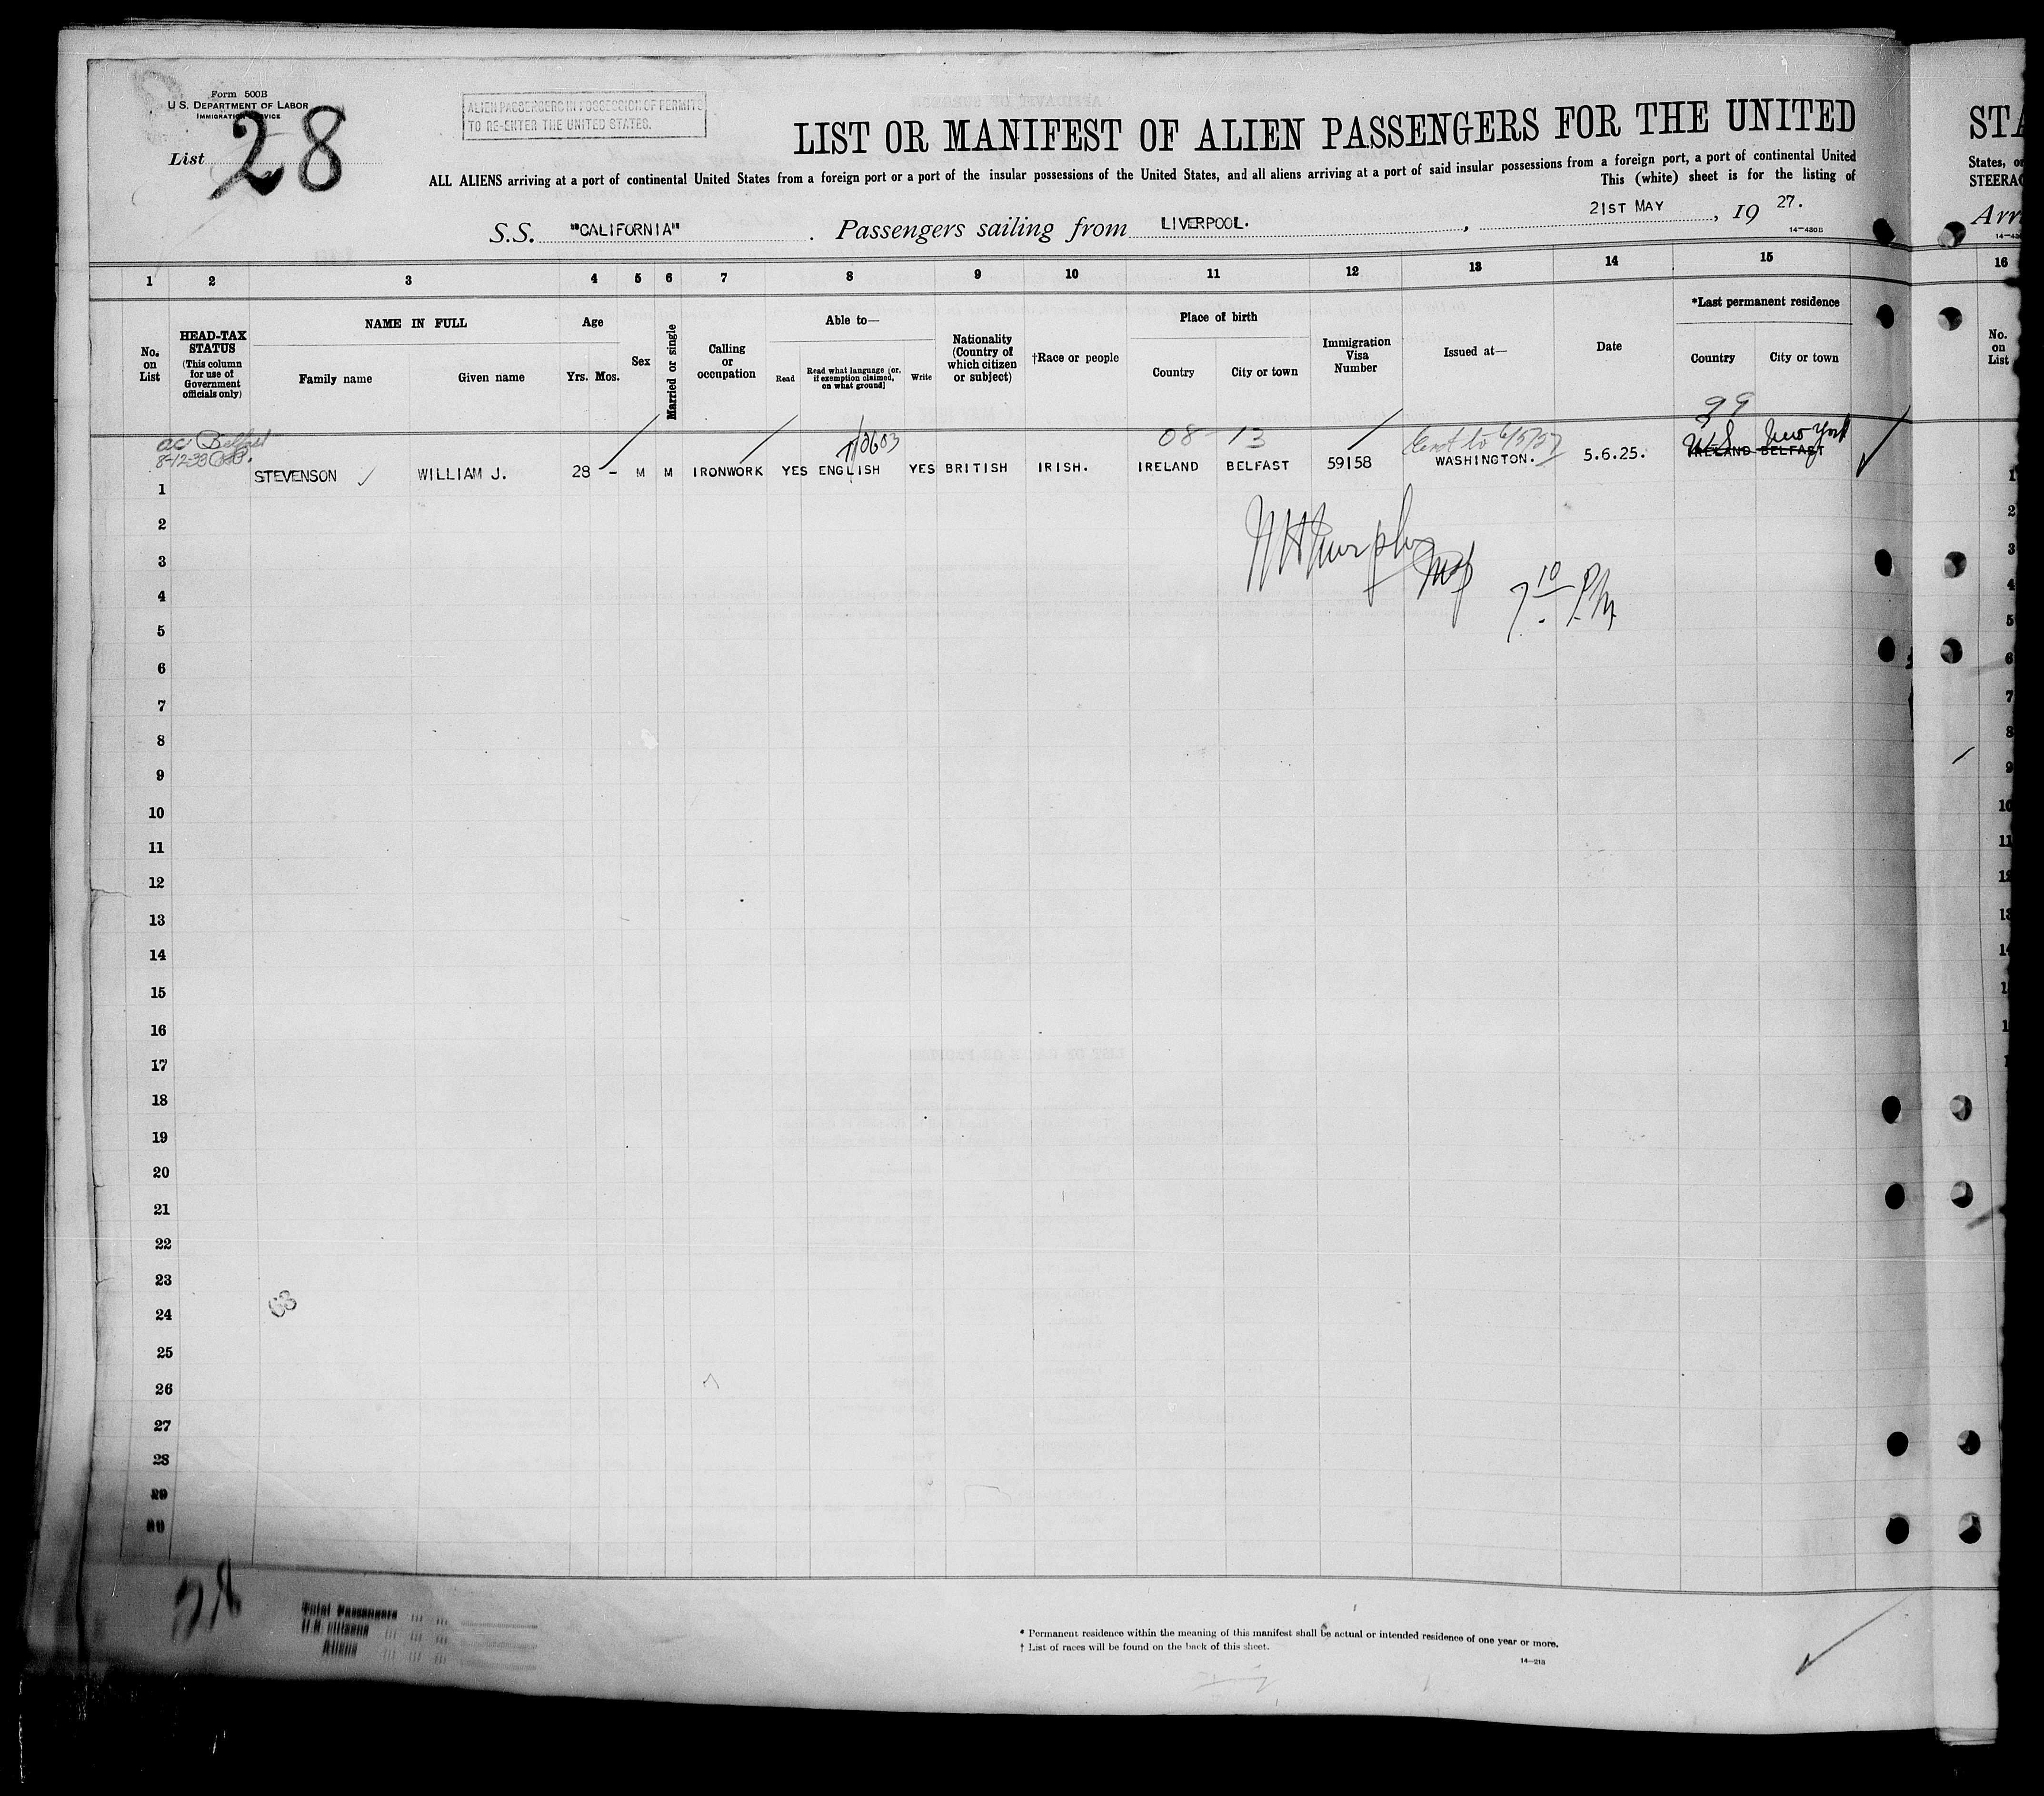 Form 500B
U.S. DEPARTMENT OF LABOR
IMMIGRATION SERVICE
List 28
ALIEN PASSENGERS IN POSSESSION OF PERMITS
TO RE-ENTER THE UNITED STATES.
LIST OR MANIFEST OF ALIEN PASSENGERS FOR THE UNITED
ALL ALIENS arriving at a port of continental United States from a foreign port or a port of the insular possessions of the United States, and all aliens arriving at a port of said insular possessions from a foreign port, a port of continental United
This (white) sheet is for the listing of
S.S. "CALIFORNIA" . Passengers sailing from LIVERPOOL. , 21ST MAY , 19 27.
14-430B
STA
States, or
STEERAG
Arri
1 2 3 4 5 6 7 8 9 10 11 12 13 14 15 16
No. on List
HEAD-TAX STATUS (This column for use of Government officials only)
NAME IN FULL
Family name Given name
Age
Yrs. Mos.
Sex
Married or single
Calling or occupation
Able to—
Read Read what language [or, if exemption claimed, on what ground] Write
Nationality (Country of which citizen or subject)
†Race or people
Place of birth
Country City or town
Immigration Visa Number
Issued at—
Date
*Last permanent residence
Country City or town
No. on List
99
Belfast
8-12-33
08-13
U.S. New York
1 STEVENSON WILLIAM J. 28 - M M IRONWORK YES ENGLISH YES BRITISH IRISH. IRELAND BELFAST 59158 WASHINGTON. 5.6.25. IRELAND BELFAST 1
2 2
3 3
4 4
7 10 P.M.
5 5
6 6
7 7
8 8
9 9
10 10
11 11
12 12
13 13
14 14
15
16
17
18
19
20
21
22
23
63
24
25
26
27
28
29
30
28
Total Passengers
U.S. citizens
Aliens
* Permanent residence within the meaning of this manifest shall be actual or intended residence of one year or more.
† List of races will be found on the back of this sheet.
14-213